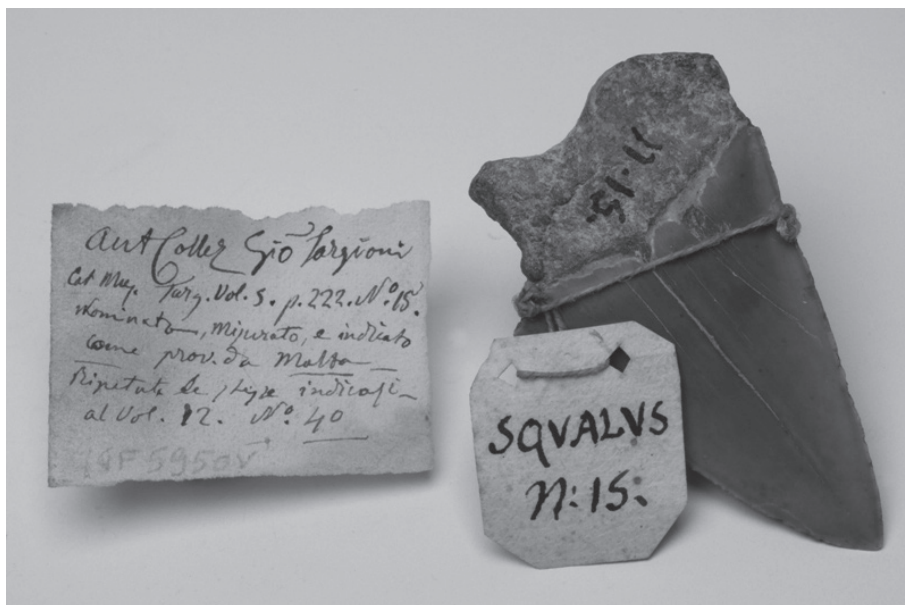 Ant Collez Giō Targioni
Cat Mus. Targ. Vol. 5. p. 222. Nº 15.
nominato, misurato, e indicato
come prov. da Malta
Ripetute le stesse indicaz.
al Vol. 12. Nº 40
IGF 5950V
SQVALVS
N: 15.
N. 15.